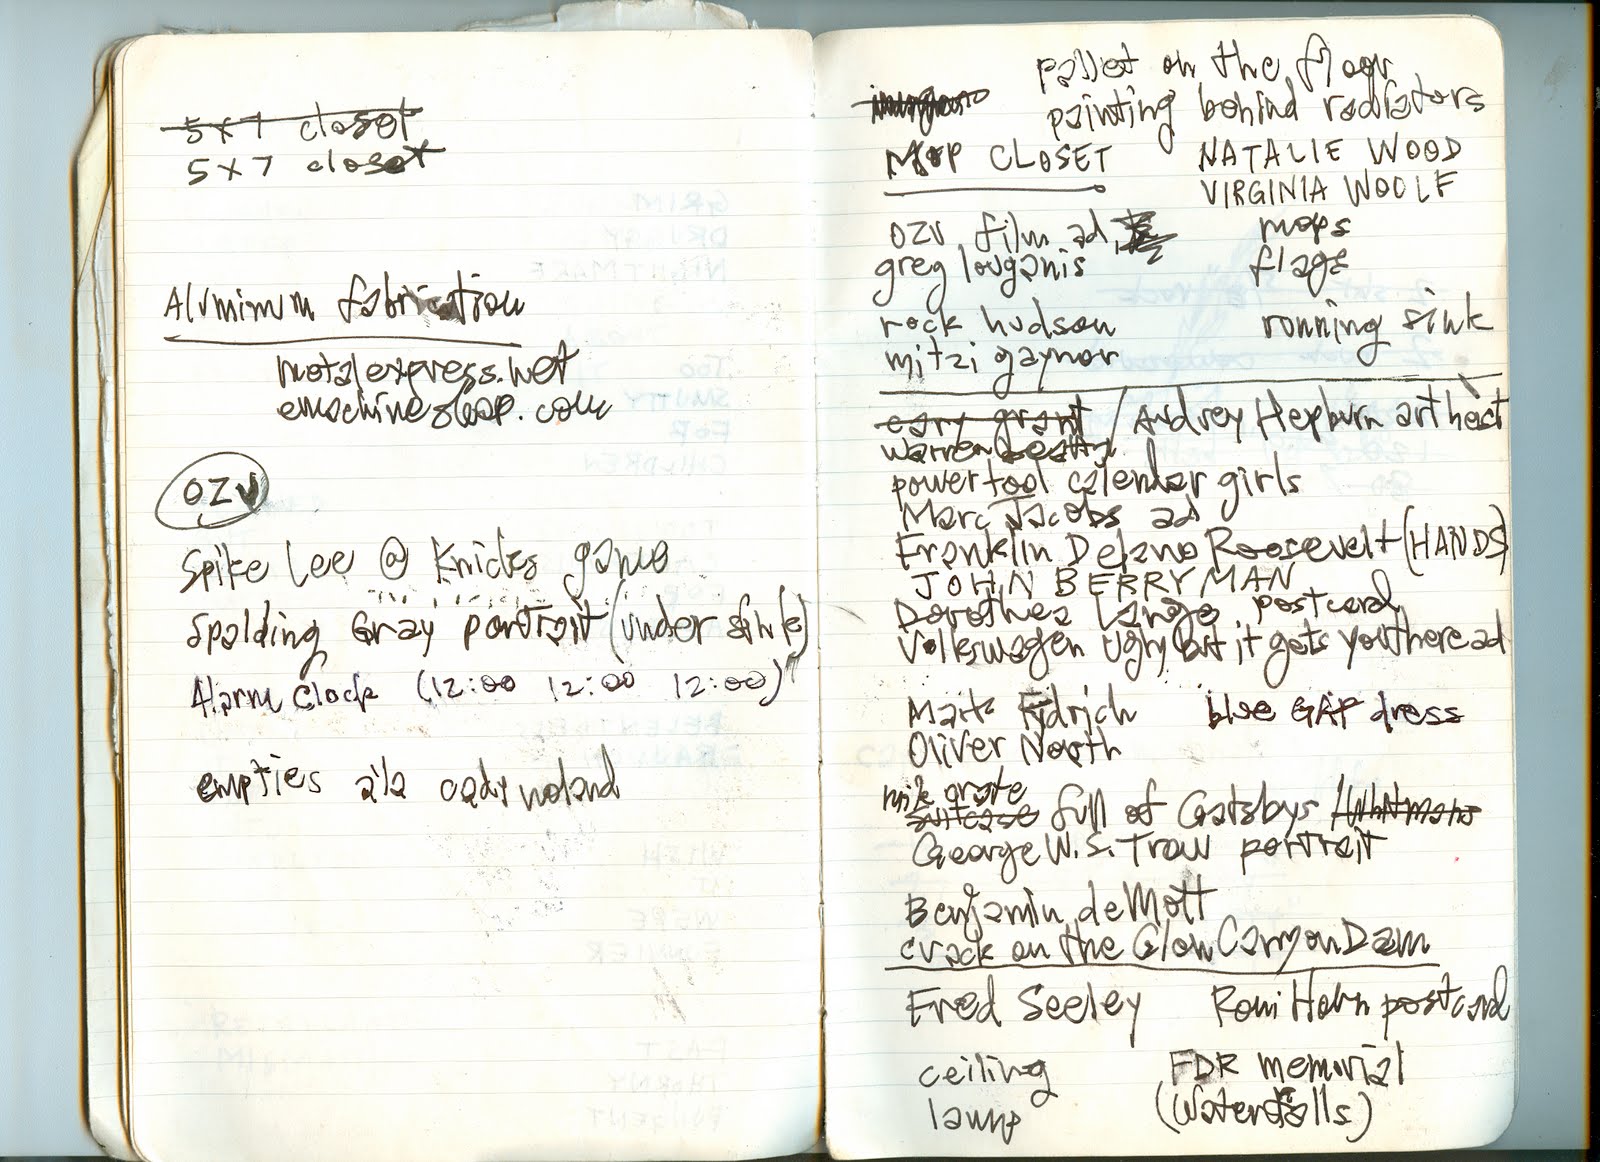 5 x 7 closet
5 x 7 closet
Aluminum fabrication
metalexpress.net
emachineshop.com
OZU
Spike Lee @ Knicks game
Spalding Gray portrait (under sink)
Alarm Clock (12:00 12:00 12:00)
empties a'la cady noland
pallet on the floor
painting behind radiators
MOP CLOSET
NATALIE WOOD
VIRGINIA WOOLF
OZU film ad,
mops
greg louganis
flags
rock hudson
running sink
mitzi gaynor
cary grant / Audrey Hepburn art heist
warren beatty
power tool calendar girls
Marc Jacobs ad
Franklin Delano Roosevelt (HANDS)
JOHN BERRYMAN
Dorothea Lange postcard
Volkswagen Ugly but it gets you there ad
Mark Fidrich
blue GAP dress
Oliver North
milk crate
suitcase full of Gatsbys / Whitmans
George W.S. Trow portrait
Benjamin deMott
crack on the Glen Canyon Dam
Fred Seeley
Roni Horn postcard
ceiling
lamp
FDR memorial
(Waterfalls)